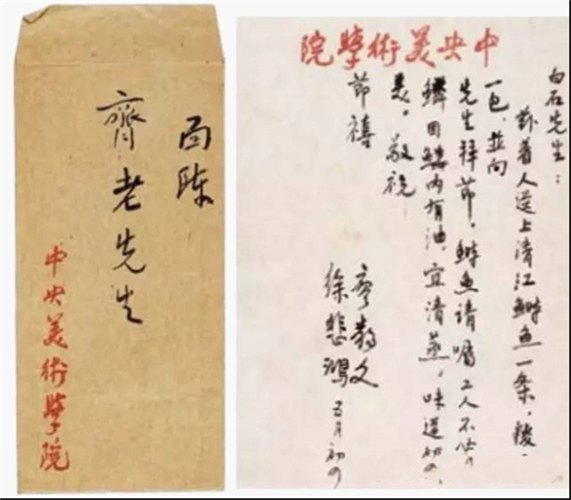 面陈
齊老先生
中央美術學院
中央美術學院
白石先生：
着人送上清江鰣魚一条，粽
一包，並向
先生拜节。鰣魚请嘱工人不必
鱗因鱗内有油，宜清蒸，味道
美。敬祝
节禧
廖静文
徐悲鴻 五月初